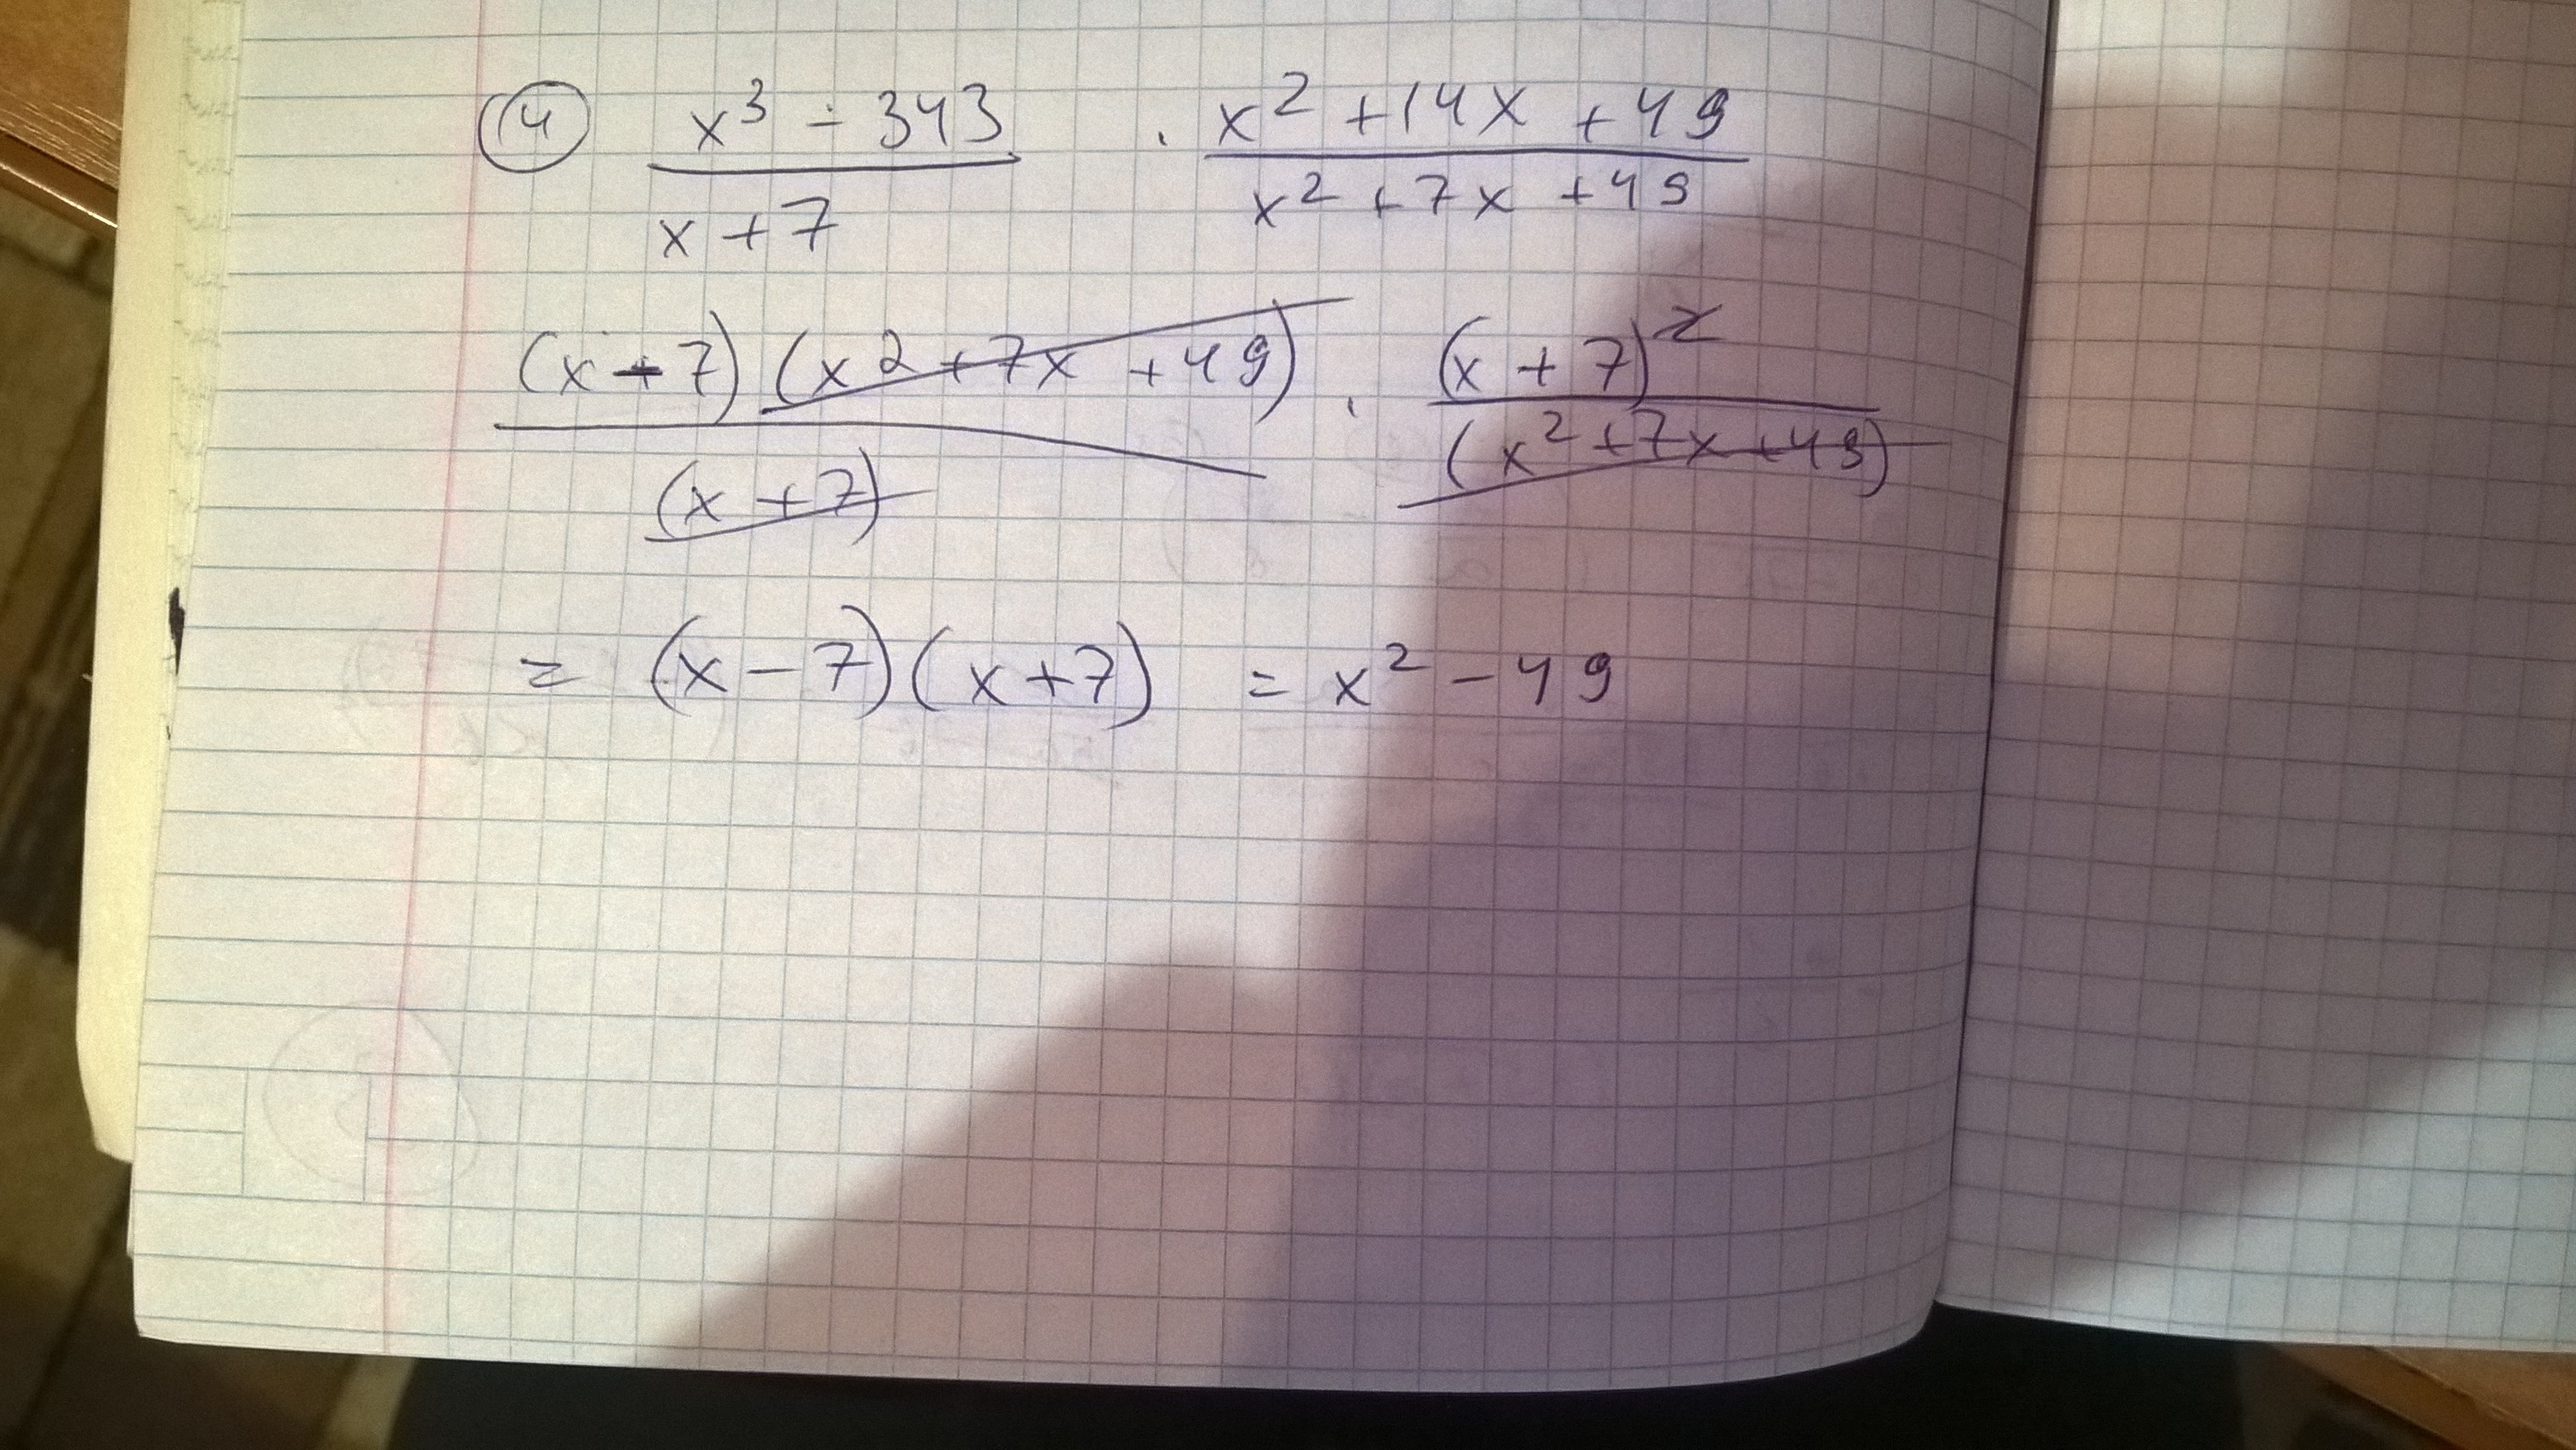 (4) x³ - 343 / x + 7 · x² + 14x + 49 / x² + 7x + 49
(x - 7)(x² + 7x + 49) / (x + 7) · (x + 7)² / (x² + 7x + 49)
= (x - 7)(x + 7) = x² - 49